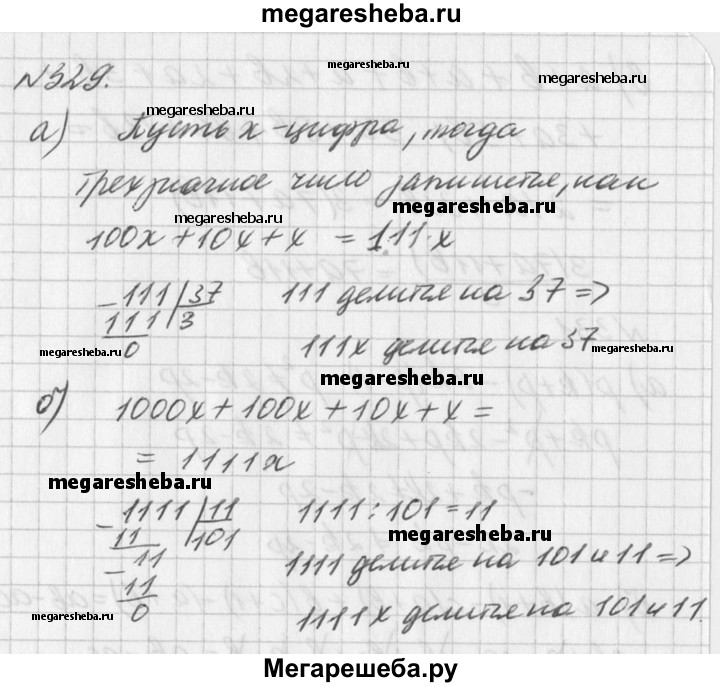 megaresheba.ru
№329.
megaresheba.ru
megaresheba.ru
а) Пусть x-цифра, тогда
трехзначное число запишется, как
megaresheba.ru
megaresheba.ru
100x+10x+x = 111·x
-111|37 111 делится на 37 =>
111|3
0 111x делится на 37
megaresheba.ru
megaresheba.ru
megaresheba.ru
б) 1000x+100x+10x+x=
= 1111x
megaresheba.ru
-1111|11 1111:101=11
11 |101
megaresheba.ru
-11 1111 делится на 101 и 11 =>
11
0 1111x делится на 101 и 11.
megaresheba.ru
megaresheba.ru
Мегарешеба.ру